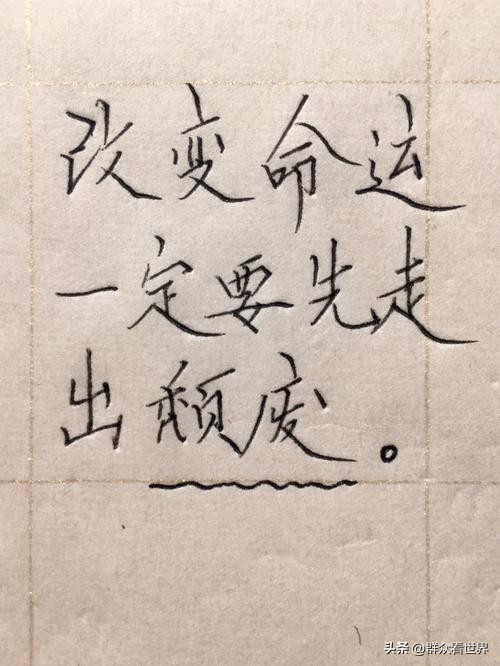 改变命运
一定要先走
出颓废。
头条 @群众看世界